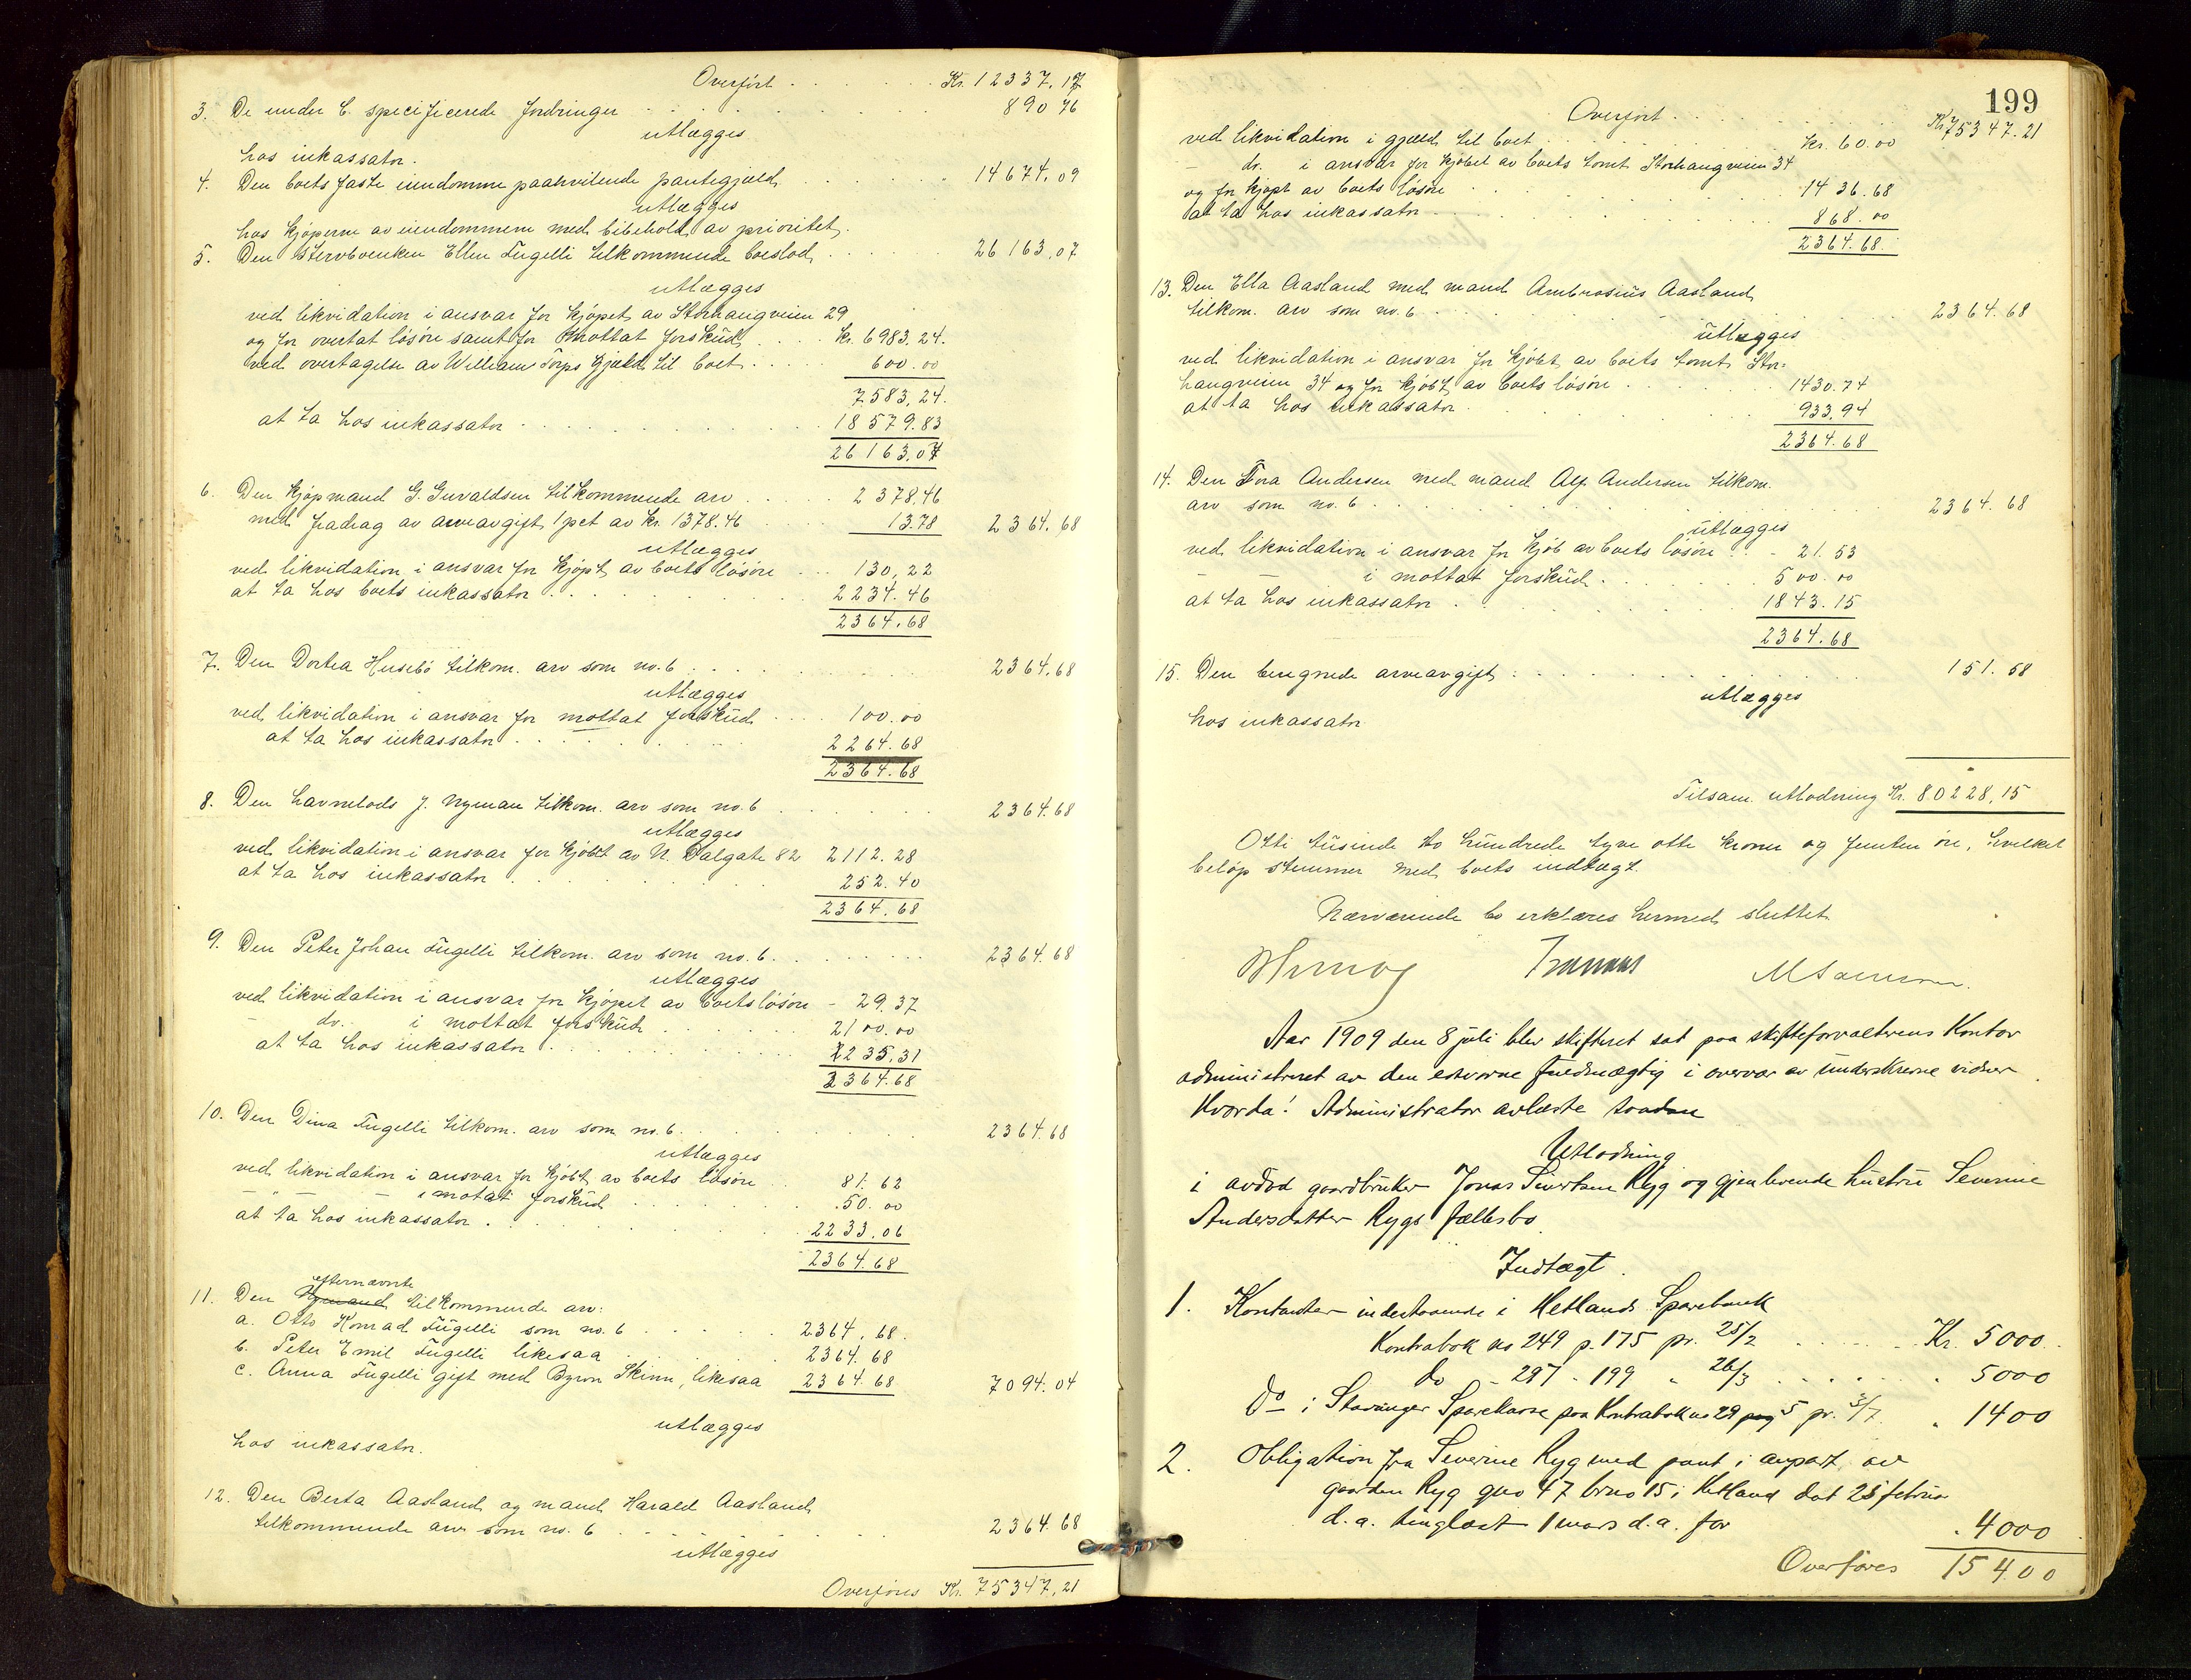 Overført . . . . . . Kr. 12337.17
3. De under C. specificerede fordringer . . . . . . 890 76
utlægges
hos inkassator.
4. Den boets faste eiendomme paahvilende pantegjæld . . . . . . 14674.09
utlægges
hos kjøperne av eiendommene med bibehold av prioritet.
5. Den Stervboenken Ellen Fugelli tilkommende boeslod . . . . . . 26163.07
utlægges
ved likvidation i ansvar for kjøpet av Storhaugveien 29
og for overtat løsøre samt for mottat forskud . . . Kr. 6983.24.
ved overtagelse av William Torps gjæld til boet . . . 600.00
7583.24.
at ta hos inkassator . . . . . . 18579.83
26163.07
6. Den kjøpmand G. Guvaldsen tilkommende arv . . . . 2378.46
med fradrag av arveavgift 1 pct av kr. 1378.46 . . 13.78 2364.68
utlægges
ved likvidation i ansvar for kjøpt av boets løsøre . . . 130,22
at ta hos boets inkassator . . . . . . 2234.46
2364.68
7. Den Dortea Husebø tilkom. arv som no. 6 . . . . . . 2364.68
utlægges
ved likvidation i ansvar for mottat forskud . . . . 100.00
at ta hos inkassator . . . . . . 2264.68
2364.68
8. Den havnelods J. Nyman tilkom. arv som no. 6 . . . . . . 2364.68
utlægges
ved likvidation i ansvar for kjøbt av N. Dalgate 82 2112.28
at ta hos inkassator . . . . . . 252.40
2364.68
9. Den Peter Johan Fugelli tilkom. arv som no. 6 . . . . . . 2364.68
utlægges
ved likvidation i ansvar for kjøpet av boets løsøre - 29.37
- do. i mottat forskud . . . . . 2100.00
at ta hos inkassator . . . . . . 235.31
2364.68
10. Den Dina Fugelli tilkom. arv som no. 6 . . . . . . 2364.68
utlægges
ved likvidation i ansvar for kjøbt av boets løsøre . . 81.62
- " - - i motat forskud . . . . . 50.00
at ta hos inkassator . . . . . . 2233.06
2364.68
efternævnte
11. Den tilkommende arv:
a. Otto Konrad Fugelli som no. 6 . . . . . 2364.68.
b. Peter Emil Fugelli likesaa . . . . . 2364.68
c. Anna Fugelli gift med Byron Skinn, likesaa 2364.68 7094.04
utlægges
hos inkassator.
12. Den Berta Aasland og mand Harald Aasland
tilkommende arv som no. 6 . . . . . . 2364.68
utlægges
Overføres Kr. 75347,21
199
Overført . . . . . . Kr 75347.21
ved likvidation i gjæld til boet . . . . . . kr. 60.00
- do. i ansvar for kjøbet av boets tomt Storhaugveien 34
og for kjøpt av boets løsøre . . . . . . 1436.68
at ta hos inkassator . . . . . . 868.00
2364.68.
13. Den Ella Aasland med mand Ambrosius Aasland
tilkom. arv som no. 6 . . . . . . 2364.68
utlægges
ved likvidation i ansvar for kjøbt av boets tomt Stor-
haugveien 34 og for kjøbt av boets løsøre . . . . 1430.74
at ta hos inkassator . . . . . . 933.94
2364.68
14. Den Tora Andersen med mand Alf Andersen tilkom.
arv som no. 6 . . . . . . 2364.68
utlægges
ved likvidation i ansvar for kjøb av boets løsøre . . - 21.53
- - i mottat forskud . . . . . 500.00
at ta hos inkassator . . . . . . 1843.15
2364.68
15. Den beregnede arveavgift . . . . . . 151.58
utlægges
hos inkassator
Tilsam. utlodning Kr. 80228,15
Otti tusinde to hundrede tyve otte kroner og femten øre, hvilket
beløp stemmer med boets indtægt.
Nærværende bo erklæres hermed sluttet.
Aar 1909 den 8 juli blev skifteret sat paa skifteforvalterens Kontor
administreret av den edsvorne fuldmægtig i overvær av underskrevne vidner
Hvorda! Administrator avlæste saadan
Utlodning
i avdød gaardbruker Jonas Sivertsen Ryg og gjenlevende hustru Severine
Andersdatter Rygs fællesbo.
Indtægt.
1. Kontanter indestaaende i Hetlands Sparebank
Kontrabok no 249 p. 175 pr. 25/2 . . . . . . Kr. 5000.
do - 297 - 199 " 26/3 . . . . . . " 5000
Do i Stavanger Sparekasse paa Kontrabok no 29 pag 5 pr. 3/7 " 1400
2. Obligation fra Severine Ryg med pant i anpart av
gaarden Ryg gno 47 brno 15 i Hetland dat 25 februar
d.a. tinglæst 1 mars d.a. for " 4000
Overføres 15400